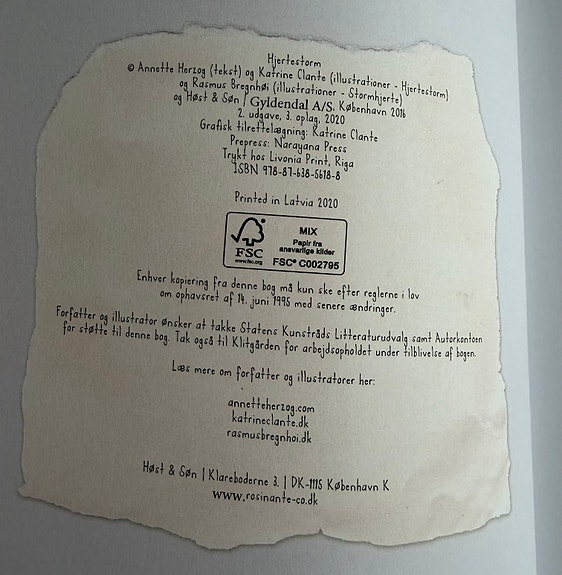 Hjertestorm
© Annette Herzog (tekst) og Katrine Clante (illustrationer - Hjertestorm)
og Rasmus Bregnhøi (illustrationer - Stormhjerte)
og Høst & Søn | Gyldendal A/S, København 2016
2. udgave, 3. oplag, 2020
Grafisk tilrettelægning: Katrine Clante
Prepress: Narayana Press
Trykt hos Livonia Print, Riga
ISBN 978-87-638-5618-8
Printed in Latvia 2020
FSC
www.fsc.org
MIX
Papir fra
ansvarlige kilder
FSC® C002795
Enhver kopiering fra denne bog må kun ske efter reglerne i lov
om ophavsret af 14. juni 1995 med senere ændringer.
Forfatter og illustrator ønsker at takke Statens Kunstråds Litteraturudvalg samt Autorkontoen
for støtte til denne bog. Tak også til Klitgården for arbejdsopholdet under tilblivelse af bogen.
Læs mere om forfatter og illustratorer her:
annetteherzog.com
katrineclante.dk
rasmusbregnhoi.dk
Høst & Søn | Klareboderne 3. | DK-1115 København K
www.rosinante-co.dk